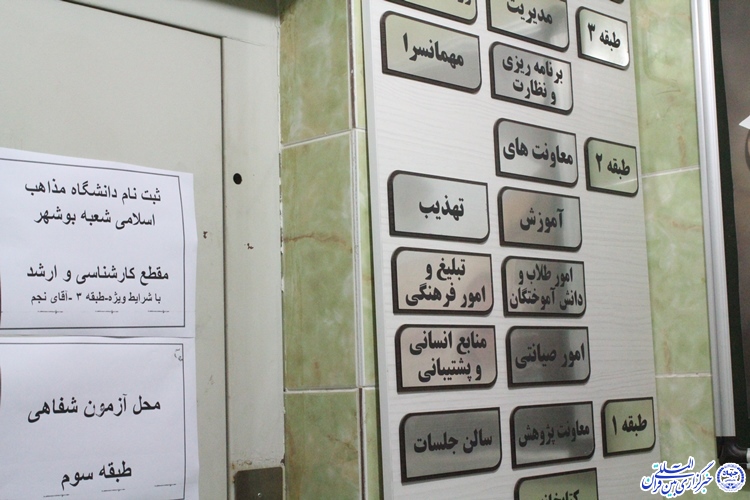 مدیریت
طبقه ۳
مهمانسرا
برنامه ریزی
و نظارت
معاونت های
طبقه ۲
تهذیب
آموزش
تبلیغ و
امور فرهنگی
امور طلاب و
دانش آموختگان
منابع انسانی
و پشتیبانی
امور صیانتی
سالن جلسات
معاونت پژوهش
طبقه ۱
کتابخانه
ثبت نام دانشگاه مذاهب
اسلامی شعبه بوشهر
مقطع کارشناسی و ارشد
با شرایط ویژه-طبقه ۳ -آقای نجم
محل آزمون شفاهی
طبقه سوم
خبرگزاری بین المللی قرآن